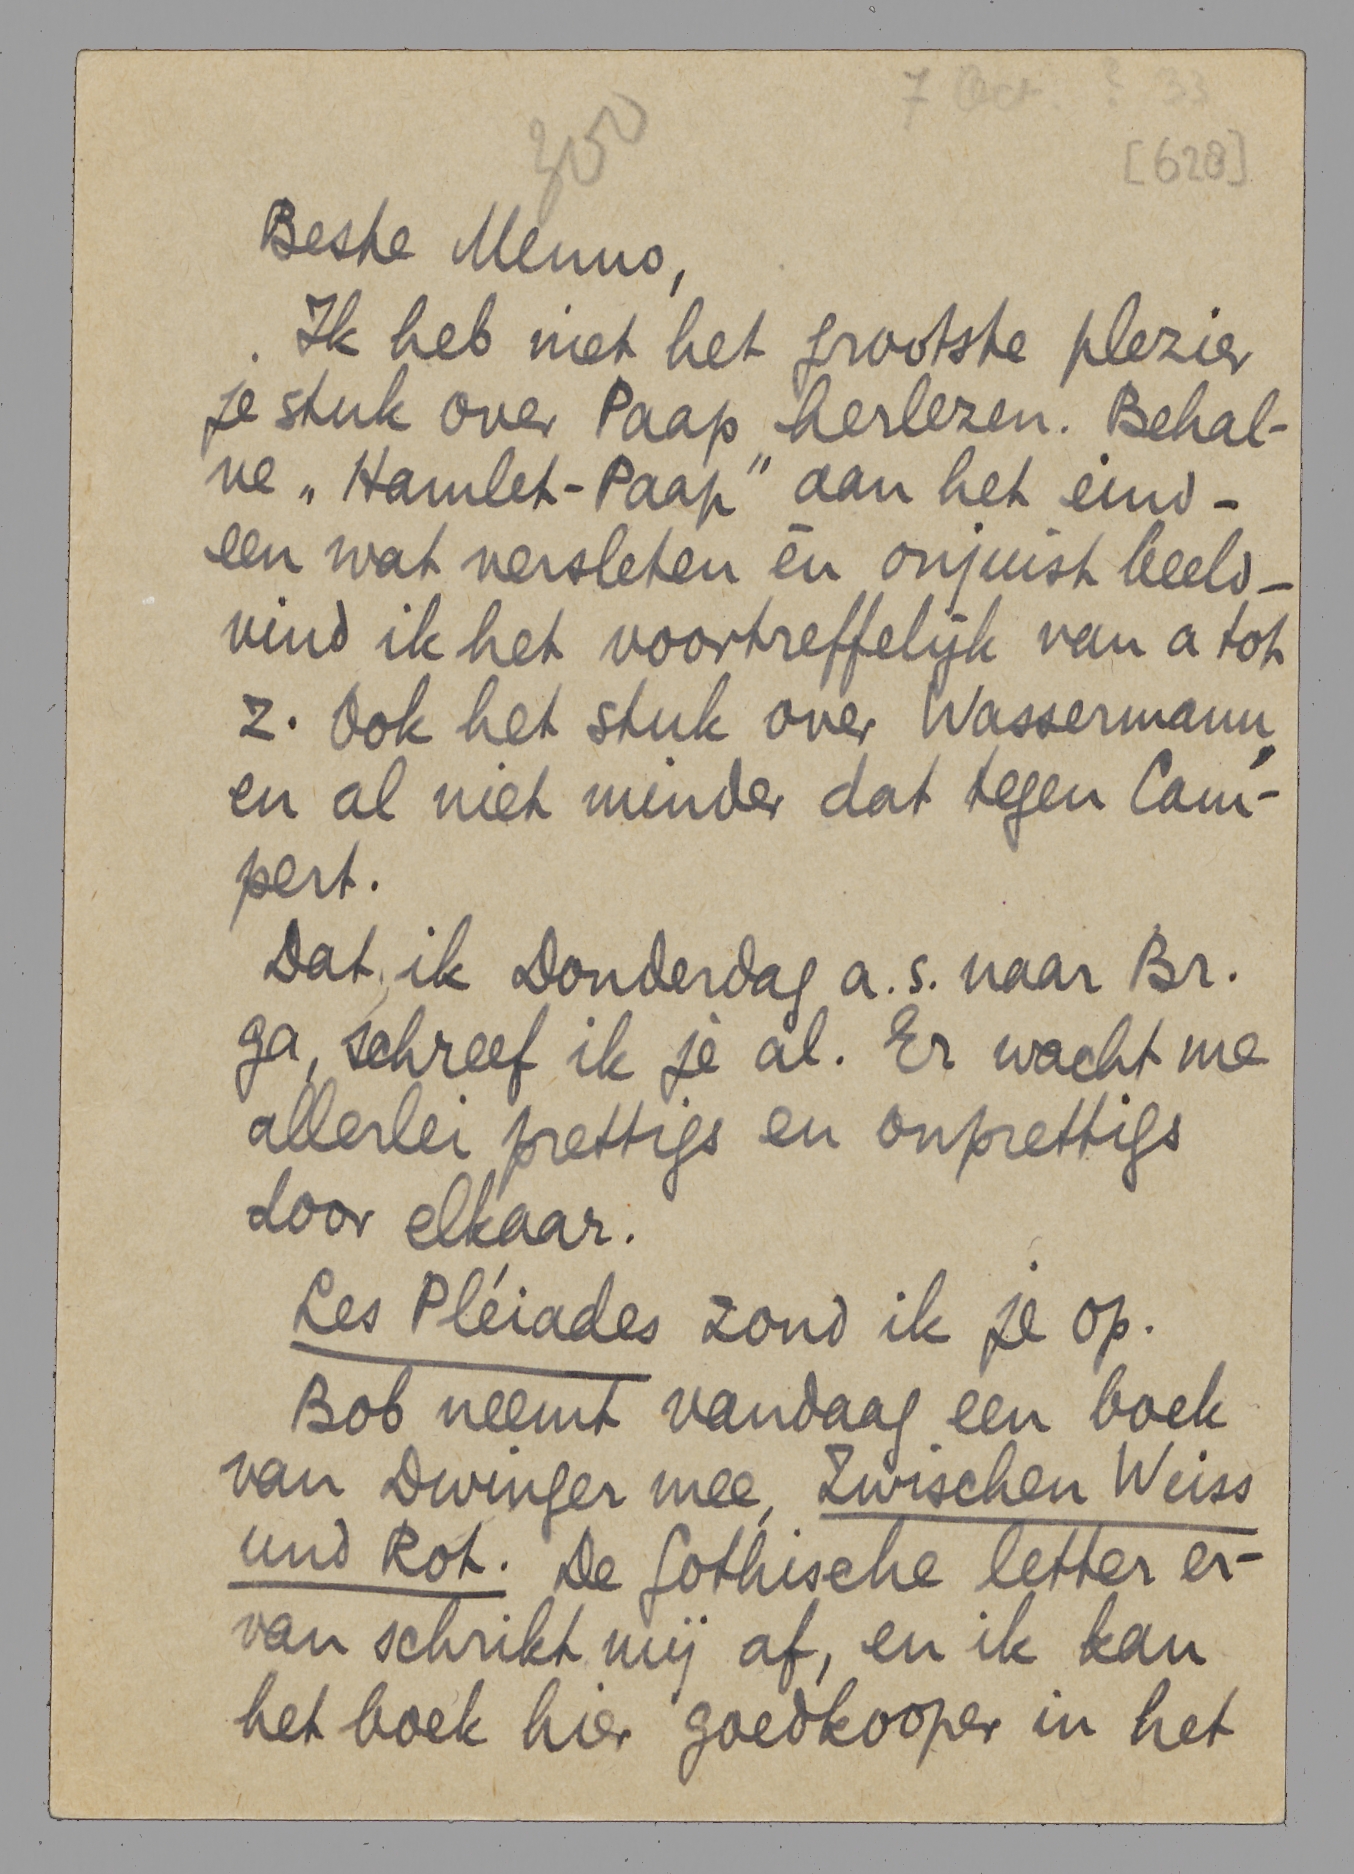 7 Oct. ? 33
[628]
Beste Menno,
Ik heb met het grootste plezier
je stuk over Paap herlezen. Behal-
ve „Hamlet-Paap” aan het eind -
een wat versleten én onjuist beeld -
vind ik het voortreffelijk van a tot
z. Ook het stuk over Wassermann,
en al niet minder dat tegen Cam-
pert.
Dat ik Donderdag a.s. naar Br.
ga, schreef ik je al. Er wacht me
allerlei prettigs en onprettigs
door elkaar.
Les Pléiades zond ik je op.
Bob neemt vandaag een boek
van Dwinger mee, Zwischen Weiss
und Rot. De Gothische letter er-
van schrikt mij af, en ik kan
het boek hier goedkooper in het